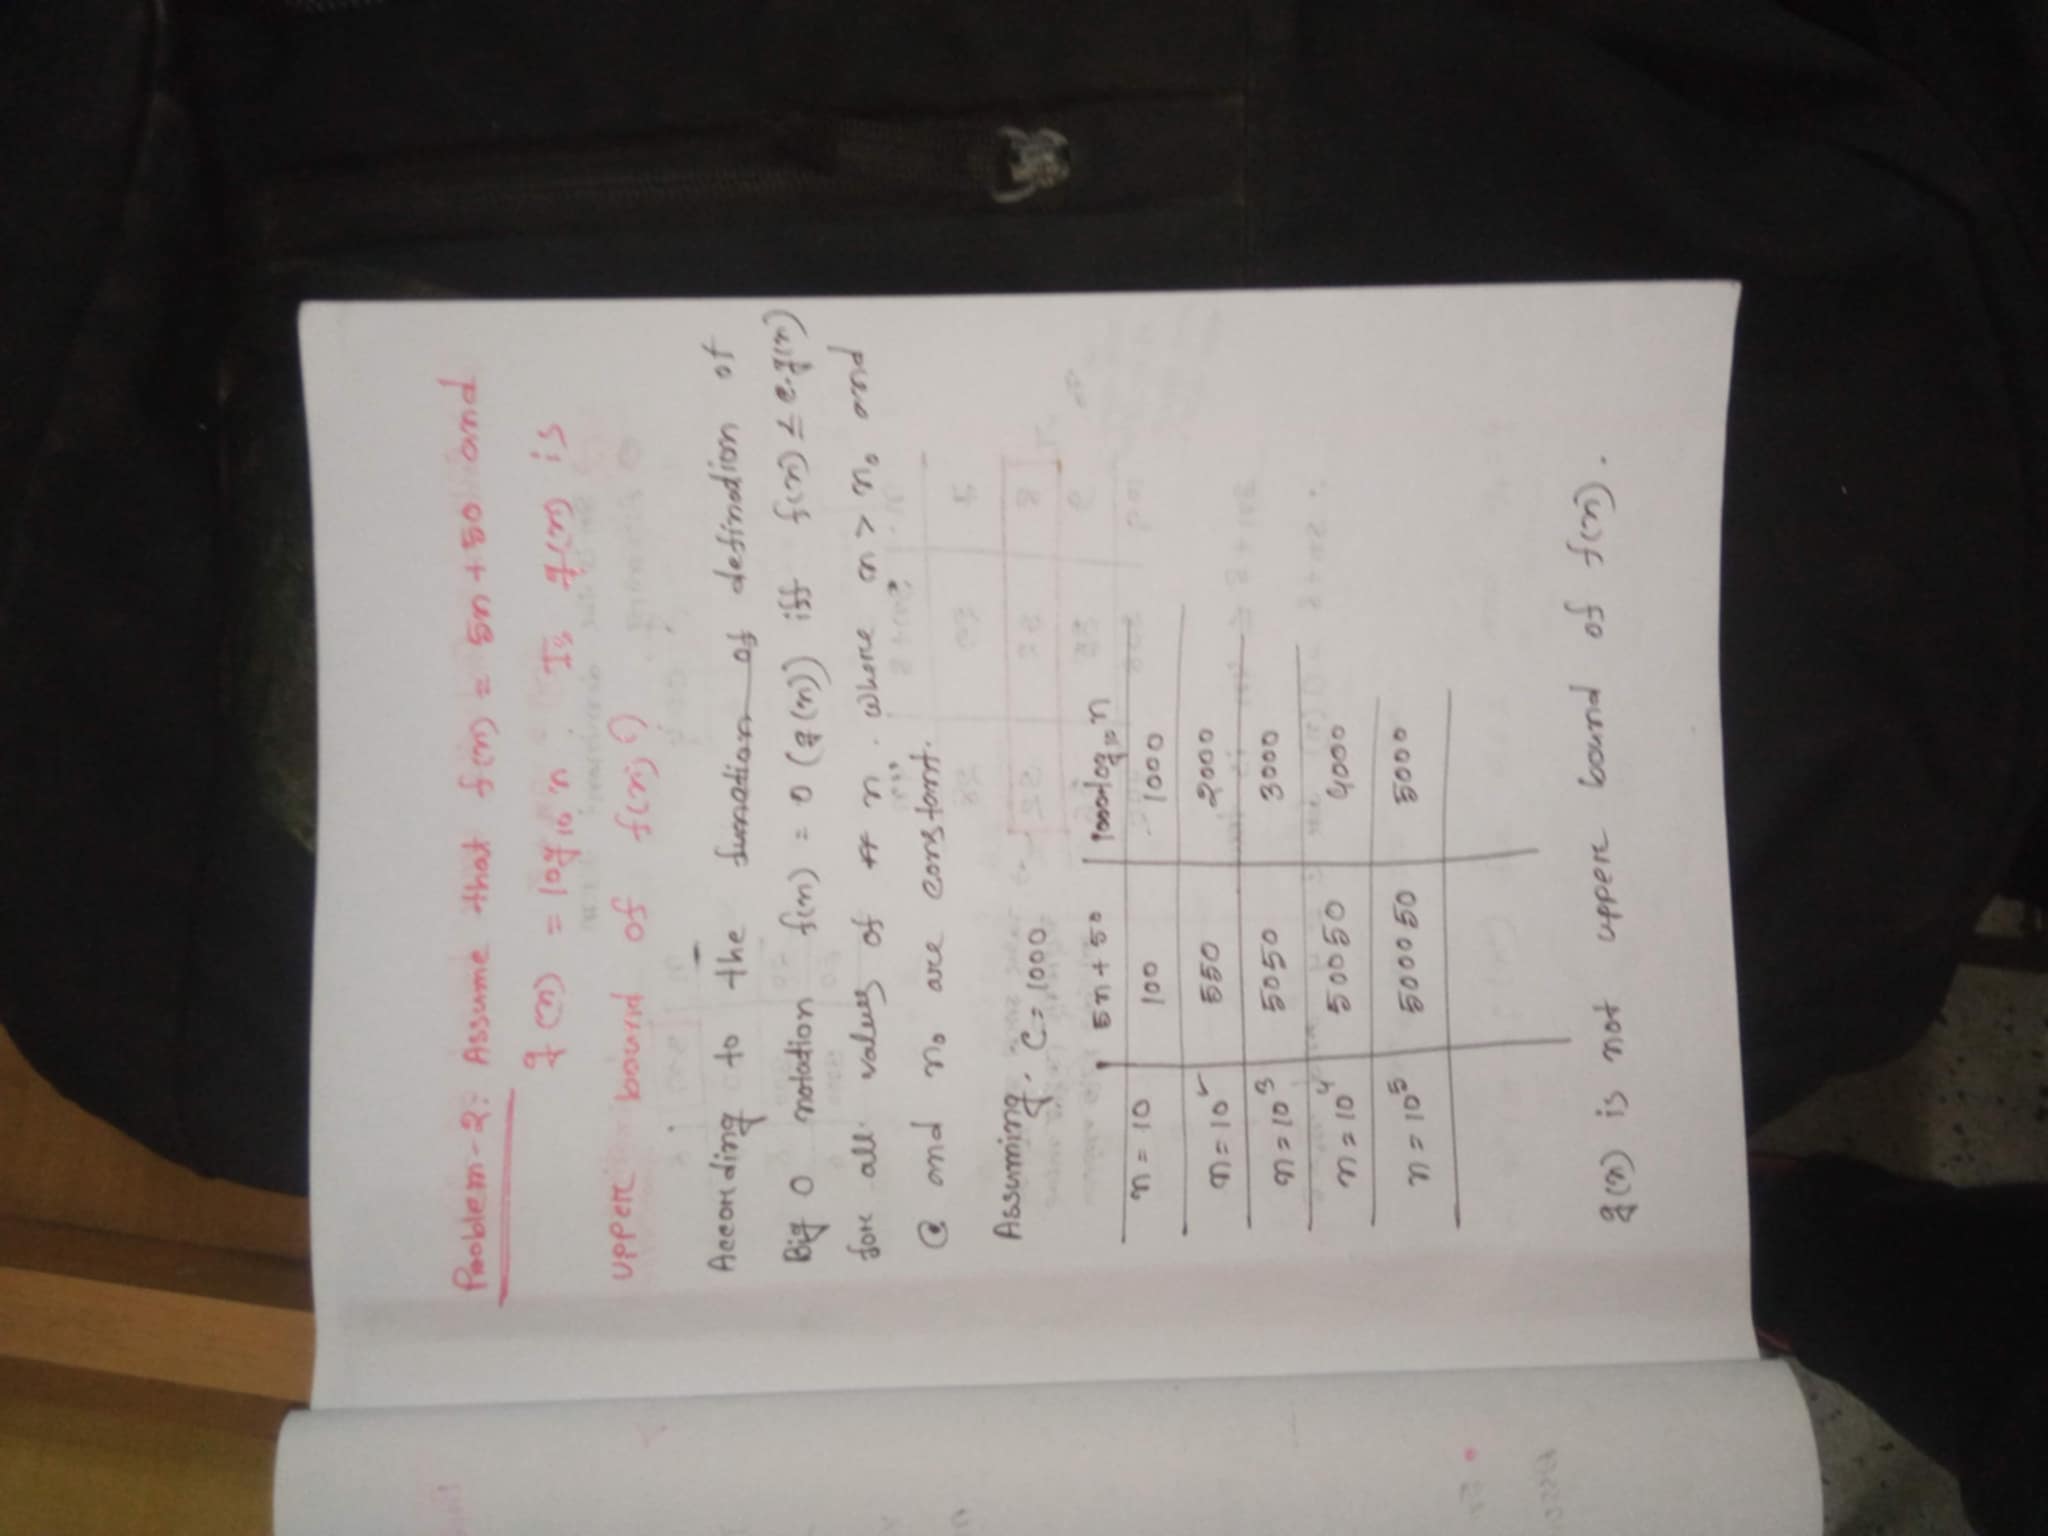 Problem-2: Assume that f(n) = 5n + 50 and
g(n) = log₁₀ n. Is g(n) is
upper bound of f(n)?
According to the function of defination of
Big O notation f(n) = O (g(n)) iff f(n) ≤ c.g(n)
for all values of n. where n > n₀ and
C and n₀ are constant.
Assuming. C = 1000
5n + 50 1000*log₁₀ n
n = 10 100 1000
n = 10² 550 2000
n = 10³ 5050 3000
n = 10⁴ 50050 4000
n = 10⁵ 500050 5000
g(n) is not upper bound of f(n).